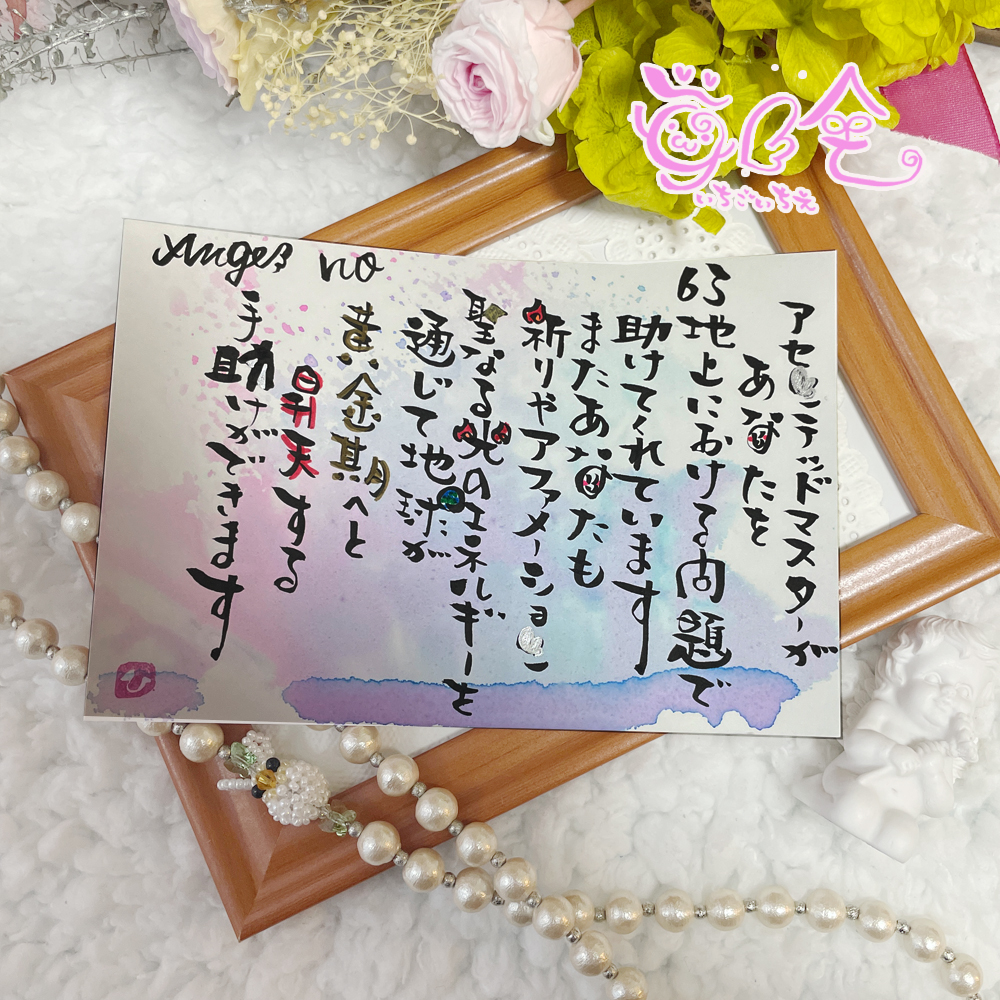 Angel no
63
アセンテッドマスターが
あなたを
地上における問題で
助けてくれています
またあなたも
祈りやアファメーション
聖なる光のエネルギーを
通じて地球が
黄金期へと
昇天する
手助けができます
いちごいちえ